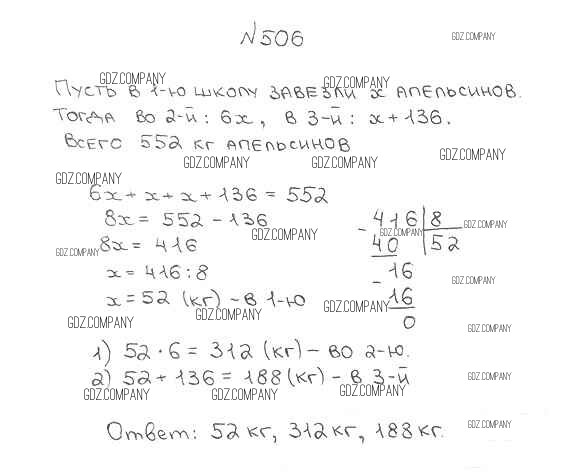 №506
GDZ.COMPANY
GDZ.COMPANY
GDZ.COMPANY
Пусть в 1-ю школу завезли x апельсинов.
Тогда во 2-й: 6x, в 3-й: x+136.
Всего 552 кг апельсинов
GDZ.COMPANY
GDZ.COMPANY
GDZ.COMPANY
GDZ.COMPANY
6x+x+x+136=552
8x=552-136
416 8
GDZ.COMPANY
GDZ.COMPANY
GDZ.COMPANY
- 40 52
8x=416
GDZ.COMPANY
x=416:8
- 16
GDZ.COMPANY
x=52 (кг) - в 1-ю
16
GDZ.COMPANY
GDZ.COMPANY
0
GDZ.COMPANY
GDZ.COMPANY
1) 52·6=312 (кг) - во 2-ю.
2) 52+136=188 (кг) - в 3-й
GDZ.COMPANY
GDZ.COMPANY
GDZ.COMPANY
GDZ.COMPANY
Ответ: 52 кг, 312 кг, 188 кг.
GDZ.COMPANY